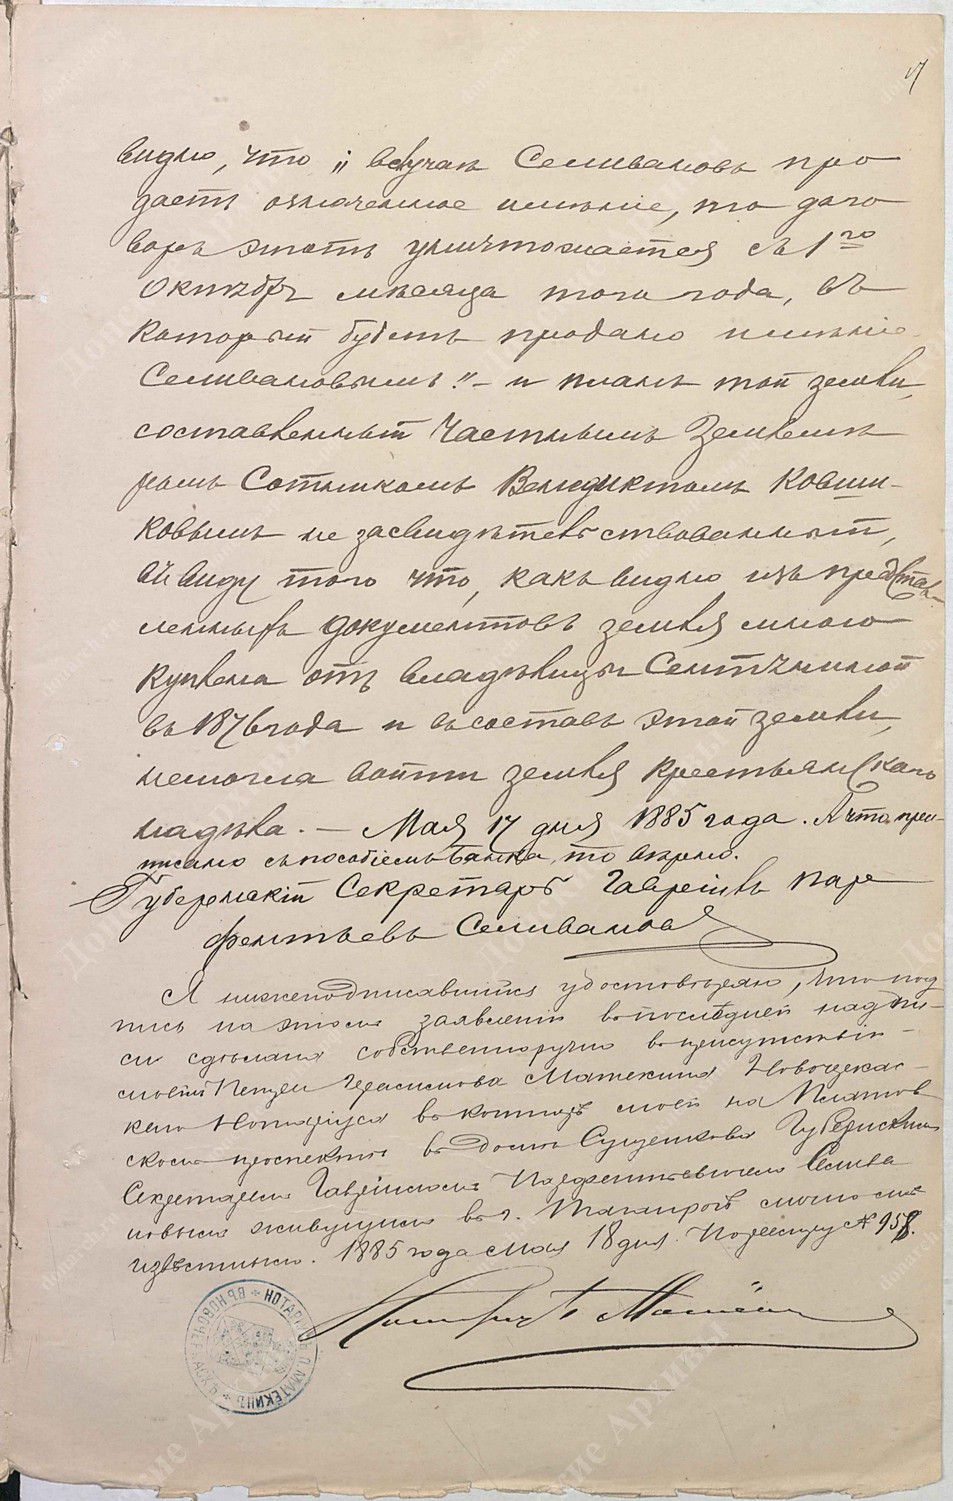 видно, что „вслучаѣ Селивановъ про
дастъ означенное имѣніе, то дого
воръ этотъ уничтожается съ 1го
Октября мѣсяца того года, въ
который будетъ продано имѣніе
Селивановымъ". – и планъ той земли,
составленный Частнымъ Землемѣ
ромъ Сотникомъ Венедиктомъ Ковши-
ковымъ не засвидѣтельствованный,
ввиду того что, какъ видно изъ представ-
ленныхъ документовъ земля мною
куплена отъ владѣлицы
въ 1876 года и въ составъ этой земли,
немогла войти земля крестьянскаго
надѣла. – Мая 17 дня 1885 года. А что
писано то вѣрно.
Губернскій Секретарь Гавріилъ Пар
фентьевъ Селивановъ
Я нижеподписавшійся удостовѣряю, что под
пись на этомъ заявленіи въ послѣдней надпи-
си сдѣлана собственноручно въ присутствіи
моемъ Петра Герасимова Матекина Новочеркас-
каго Нотаріуса въ конторѣ моей на Платов
скомъ проспектѣ въ домѣ Губернскимъ
Секретаремъ Гавріиломъ Парфентьевичемъ Селива
новымъ живущимъ въ г. Таганрогѣ лично мнѣ
извѣстнымъ. 1885 года Мая 18 дня. По реестру № 958.
Нотаріусъ
НОТАРІУСЪ П. МАТЕКИНЪ * ВЪ НОВОЧЕРКАСКѢ *